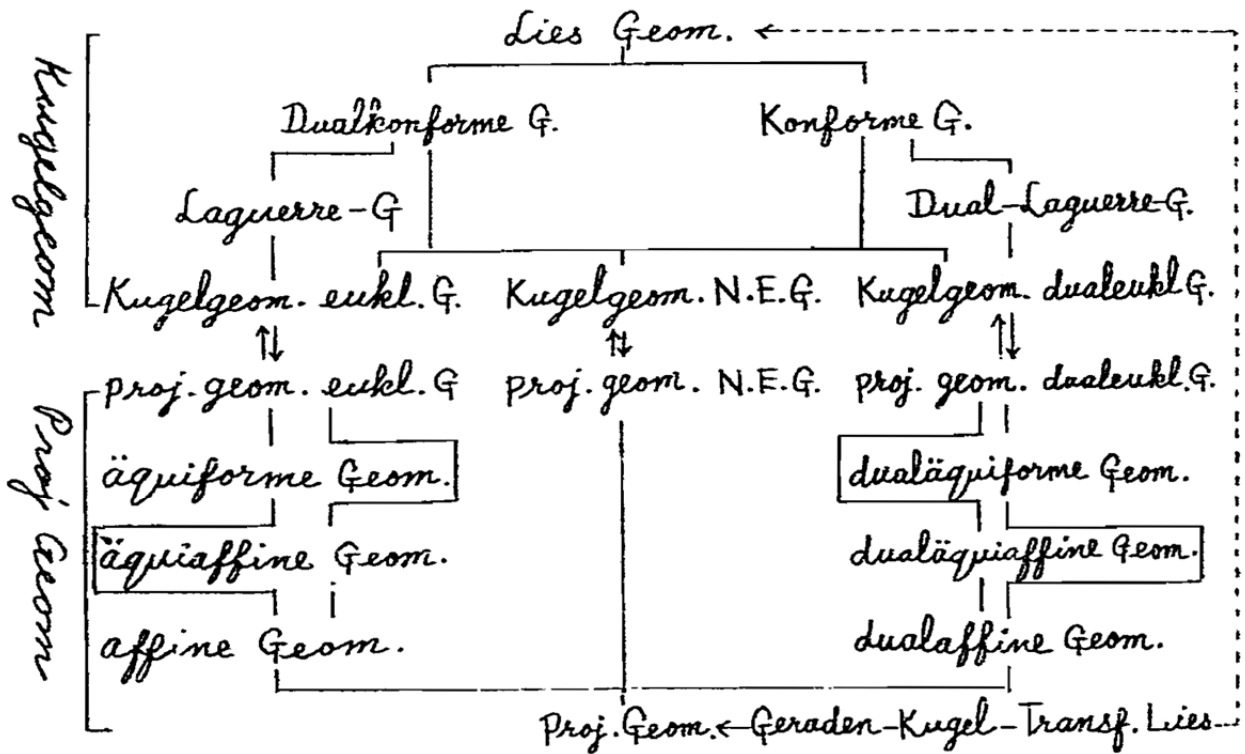 Lies Geom.
Kugelgeom
Dualkonforme G. Konforme G.
Laguerre-G Dual-Laguerre-G.
Kugelgeom. eukl. G. Kugelgeom. N.E.G. Kugelgeom. dualeukl G.
proj. geom. eukl. G proj. geom. N.E.G. proj. geom. dualeukl. G.
Proj Geom
äquiforme Geom. dualäquiforme Geom.
äquiaffine Geom. dualäquiaffine Geom.
affine Geom. dualaffine Geom.
Proj. Geom. ← Geraden-Kugel-Transf. Lies